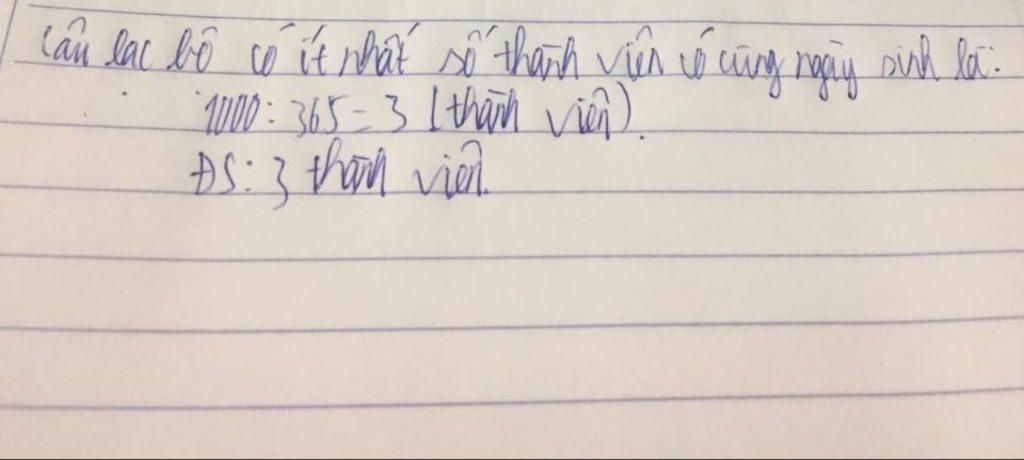 Câu lạc bộ có ít nhất số thành viên có cùng ngày sinh là:
1000 : 365 = 3 (thành viên).
ĐS: 3 thành viên.